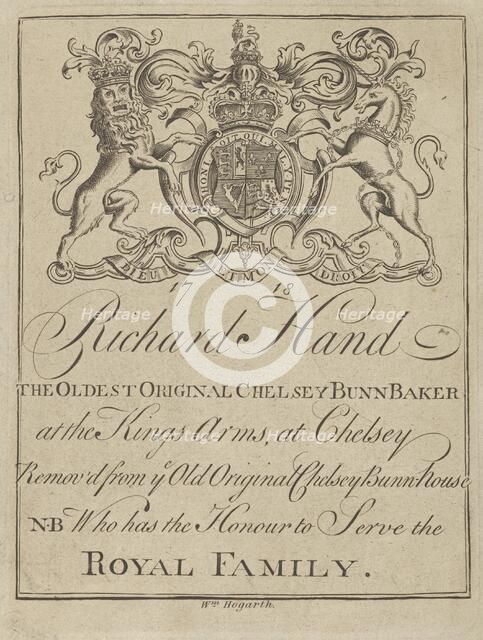 HONI SOIT QUI MAL Y PENSE
DIEU ET MON DROIT
17 18
Richard Hand
THE OLDEST ORIGINAL CHELSEY BUNN BAKER
at the Kings Arms, at Chelsey
Remov'd from yᵉ Old Original Chelsey Bunn-house
N·B Who has the Honour to Serve the
ROYAL FAMILY.
Wᵐ Hogarth.
Heritage
Heritage
Heritage
Heritage
Heritage
Heritage
Heritage
Heritage